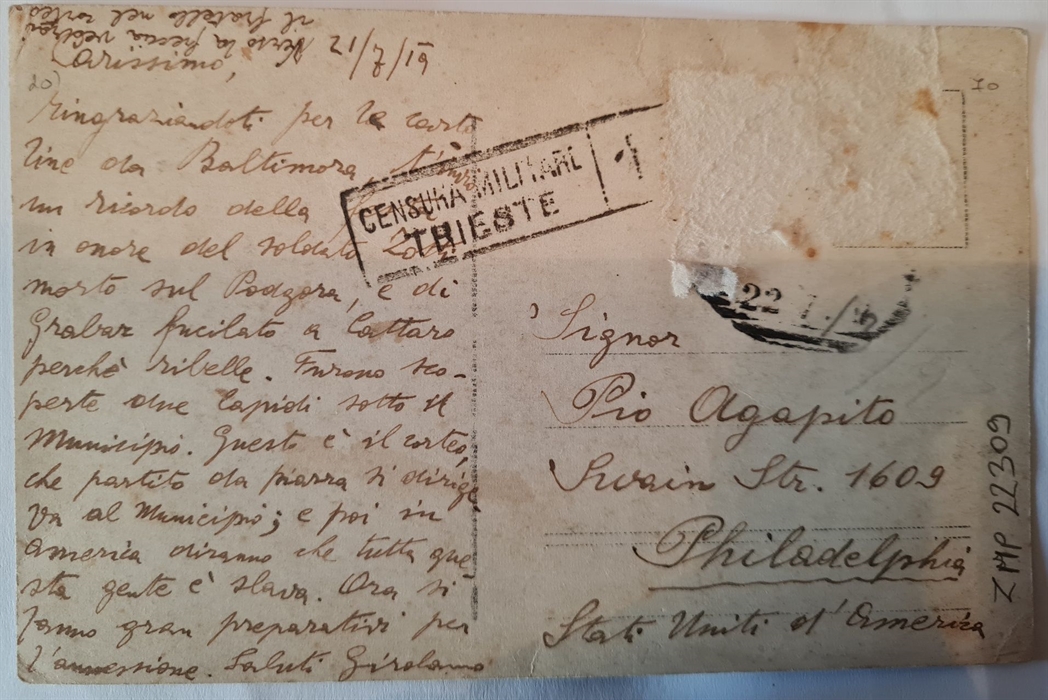 Verso la freccia vedrai
il fratello nel corteo
12/7/19
Carissimo,
20)
Ringraziandoti per le carto
line da Baltimora, t'invio
un ricordo della
in onore del soldato
morto sul Podgora, e di
Grabar fucilato a Cattaro
perchè ribelle. Furono sco-
perte due lapidi sotto il
Municipio. Questo è il corteo,
che partito da piazza si dirige
va al Municipio; e poi in
America diranno che tutta que
sta gente è slava. Ora si
fanno gran preparativi per
l'annessione. Saluti Girolamo
CENSURA MILITARE
TRIESTE
1
70
22
Signor
Pio Agapito
Swain Str. 1609
Philadelphia
Stati Uniti d'America
ZMP 22309